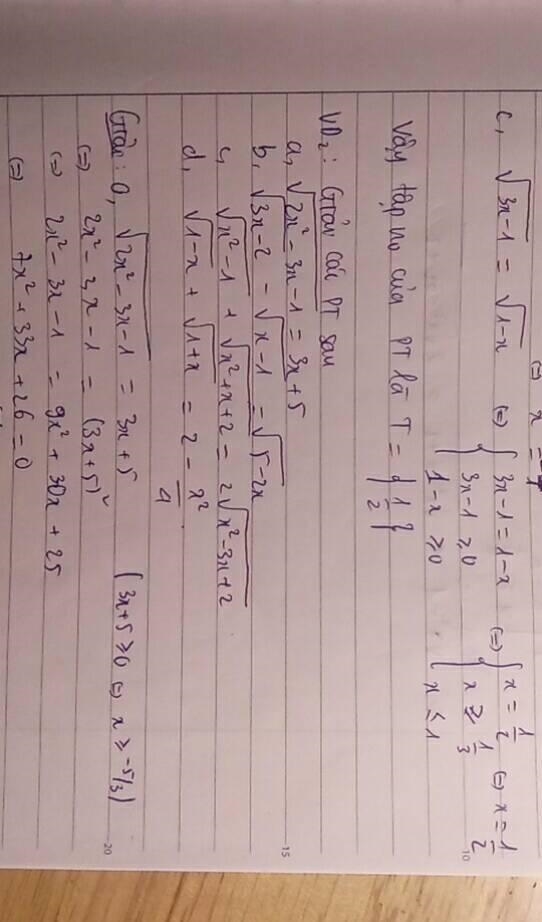 ⇔ x =
c, √(3x-1) = √(1-x) ⇔ { 3x-1 = 1-x ⇔ { x = 1/2 ⇔ x = 1/2
3x-1 ≥ 0 x ≥ 1/3
1-x ≥ 0 x ≤ 1
10
Vậy tập no của PT là T = {1/2}
VD₂: Giải các PT sau
a, √(2x²-3x-1) = 3x+5
15
b, √(3x-2) - √(x-1) = √(5-2x)
c, √(x²-1) + √(x²+x+2) = 2√(x²-3x+2)
d, √(1-x) + √(1+x) = 2 - x²/4
Giải: a, √(2x²-3x-1) = 3x+5 (3x+5 ≥ 0 ⇔ x ≥ -5/3)
20
⇔ 2x²-3x-1 = (3x+5)²
⇔ 2x²-3x-1 = 9x²+30x+25
⇔ 7x²+33x+26 = 0